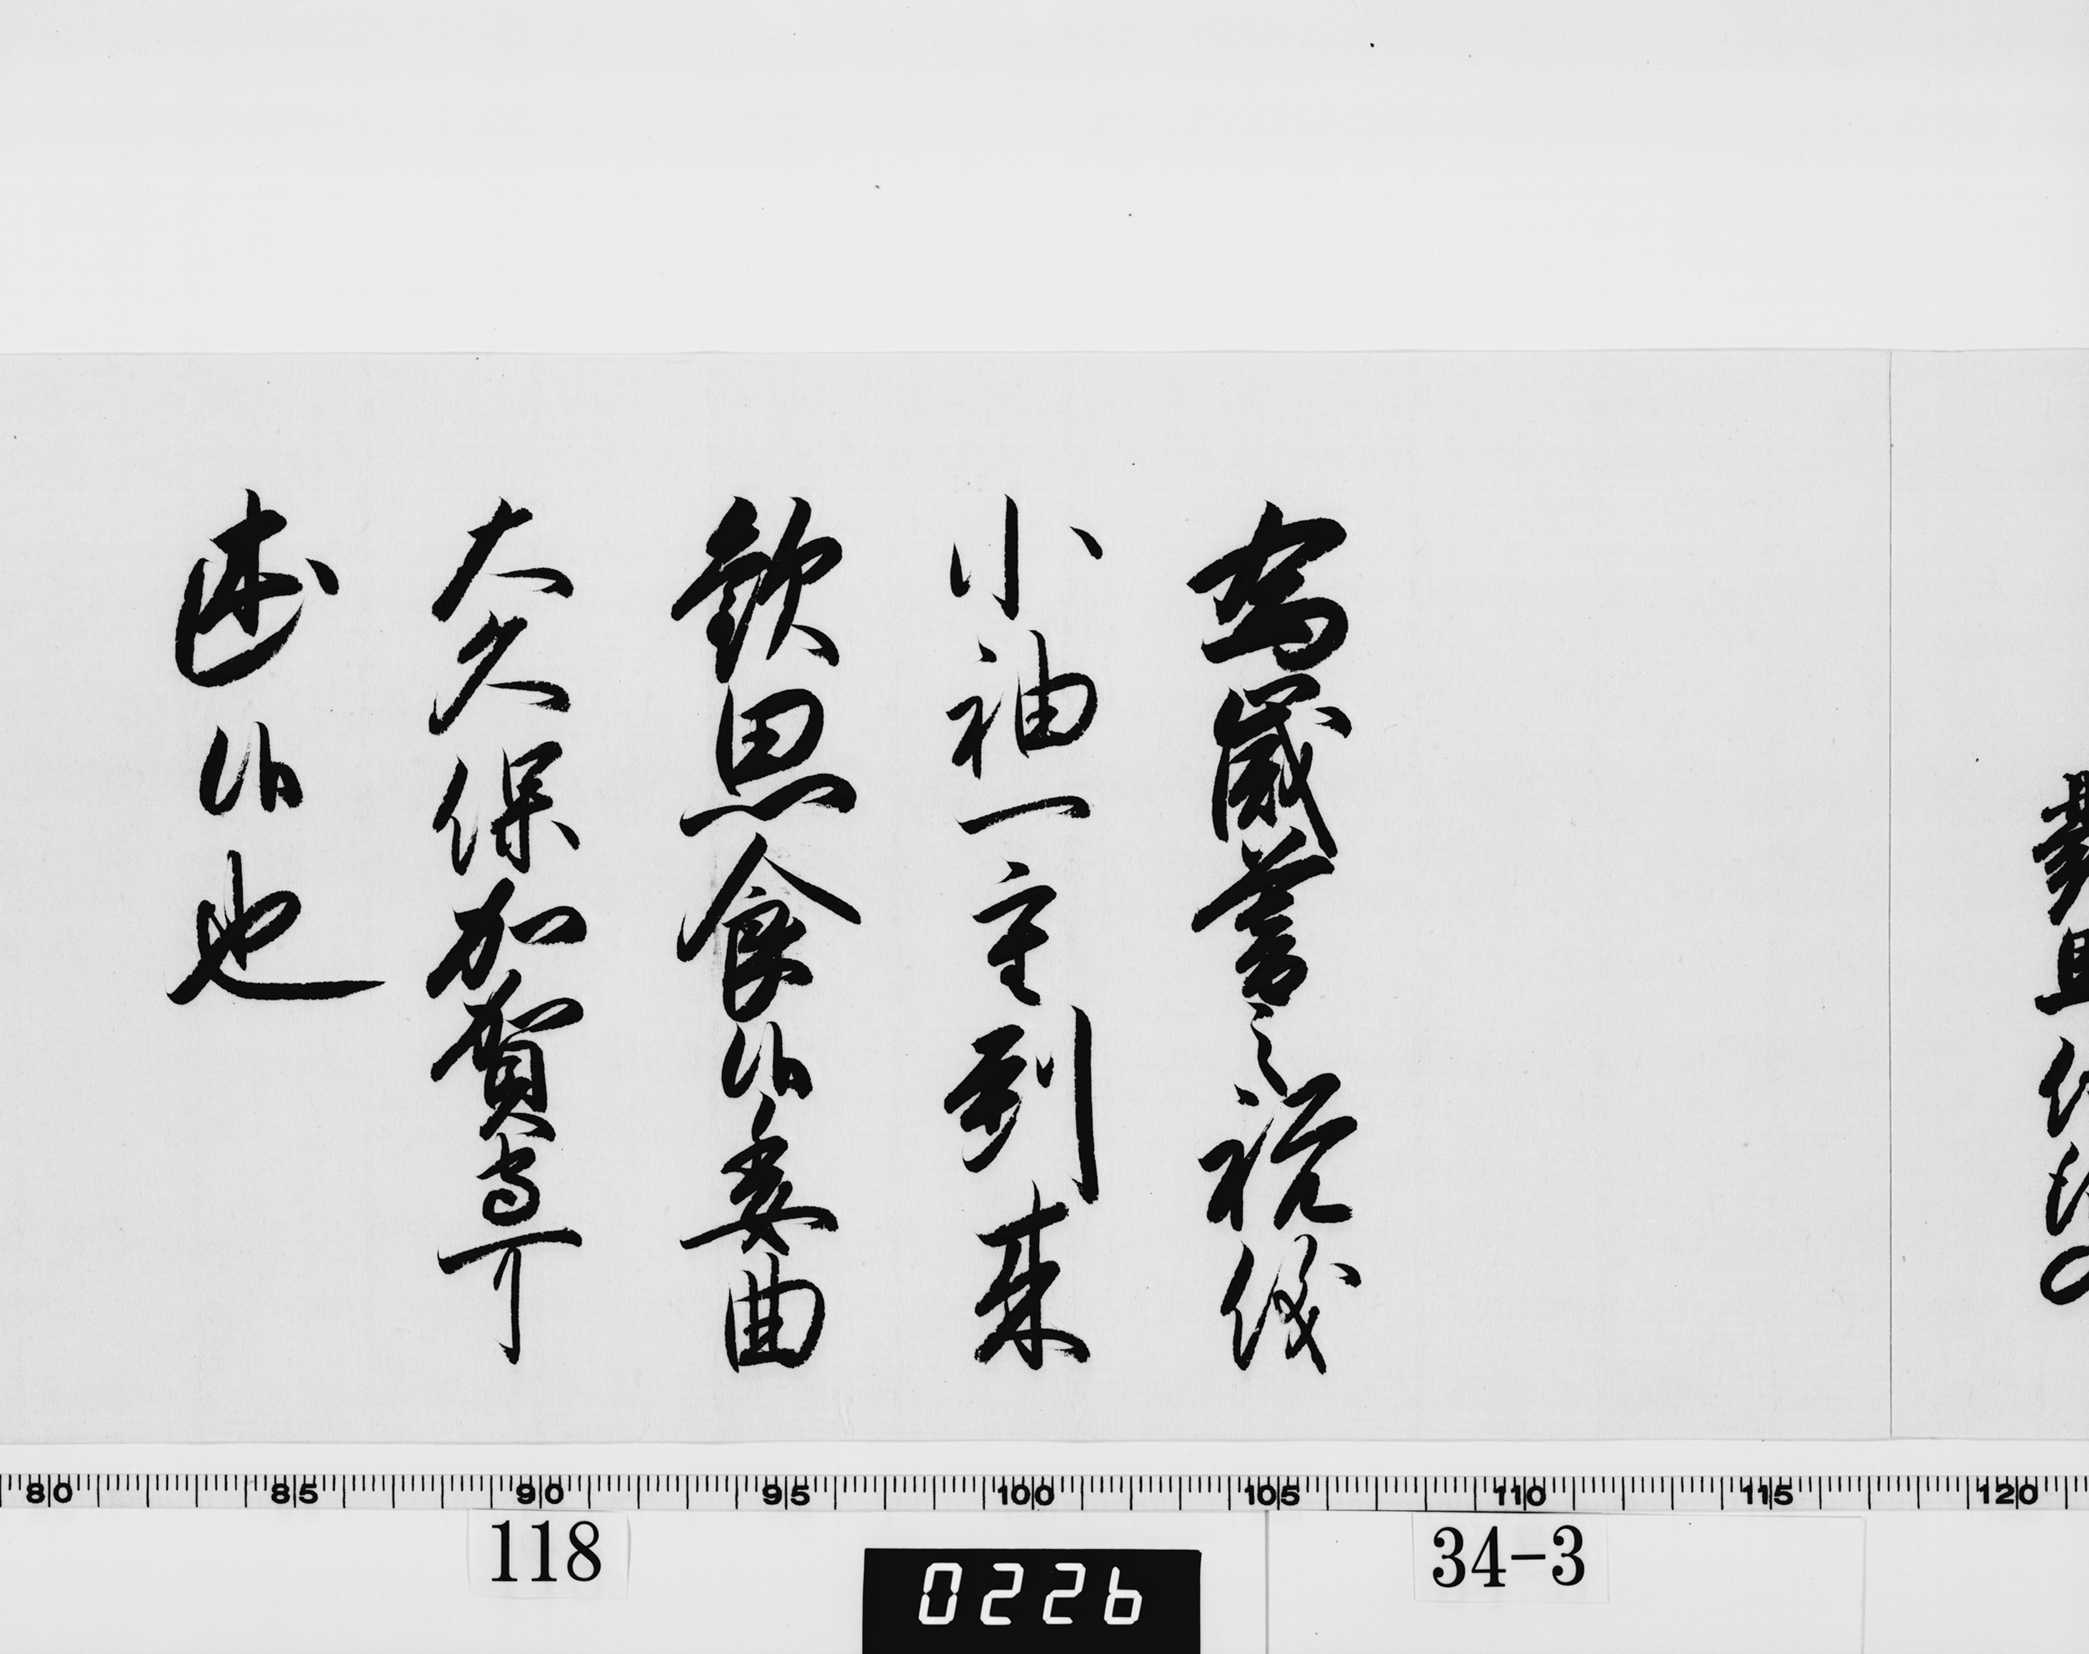 為歳暮之祝儀
小袖一重到来
歓思食候委曲
大久保加賀守可
述候也
80 85 90 95 100 105 110 115 120
118
0226
34-3